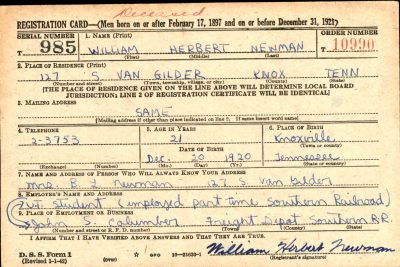 Deceased
REGISTRATION CARD—(Men born on or after February 17, 1897 and on or before December 31, 1921)
SERIAL NUMBER 1. NAME (Print) ORDER NUMBER
T 985 WILLIAM HERBERT NEWMAN 10990
(First) (Middle) (Last)
2. PLACE OF RESIDENCE (Print)
127 S. VAN GILDER KNOX TENN
(Number and street) (Town, township, village, or city) (County) (State)
[THE PLACE OF RESIDENCE GIVEN ON THE LINE ABOVE WILL DETERMINE LOCAL BOARD
JURISDICTION; LINE 2 OF REGISTRATION CERTIFICATE WILL BE IDENTICAL]
3. MAILING ADDRESS
SAME
[Mailing address if other than place indicated on line 2. If same insert word same]
4. TELEPHONE 5. AGE IN YEARS 6. PLACE OF BIRTH
2-3753 21 Knoxville
DATE OF BIRTH (Town or county)
Dec. 20 1920 Tennessee
(Exchange) (Number) (Mo.) (Day) (Yr.) (State or country)
7. NAME AND ADDRESS OF PERSON WHO WILL ALWAYS KNOW YOUR ADDRESS
Mrs. B. L. Newman 127 S. Van Gilder
8. EMPLOYER'S NAME AND ADDRESS
U.T. Student (employed part time Southern Railroad)
9. PLACE OF EMPLOYMENT OR BUSINESS
John S. Freight Depot Southern R.R.
(Number and street or R. F. D. number) (Town) (County) (State)
I AFFIRM THAT I HAVE VERIFIED ABOVE ANSWERS AND THAT THEY ARE TRUE.
D. S. S. Form 1 GPO 16—21630-1 William Herbert Newman
(Revised 1-1-42) (over) (Registrant's signature)